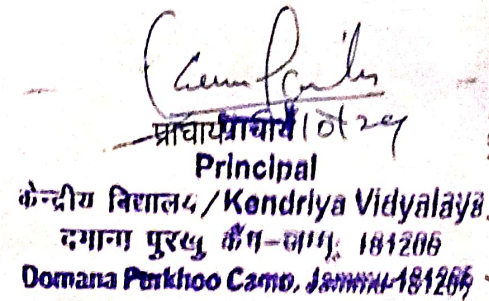 प्राचार्य
Principal
केन्द्रीय विद्यालय / Kendriya Vidyalaya
दमाना पुरखु कैंप-जम्मु, 181206
Domana Purkhoo Camp, Jammu-181206